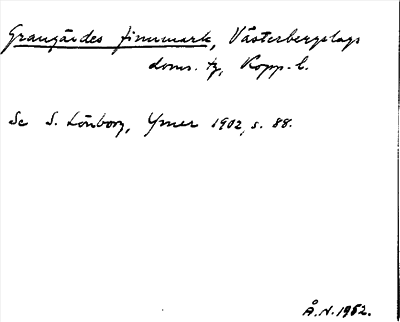 Grangärdes finnmark, Västerbergslags
doms. tg, Kopp. l.
Se S. Lönborg, Ymer 1902, s. 88.
Å.N. 1952.